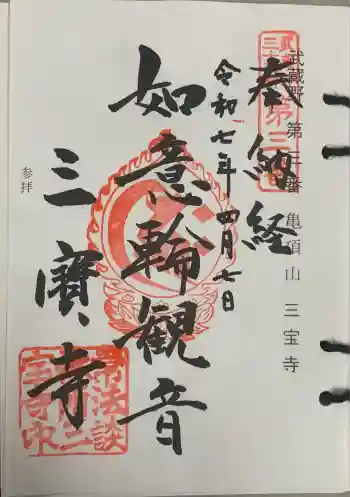 武蔵野 第三番 亀頂山 三宝寺
奉納経
令和七年四月七日
如意輪観音
三寳寺
参拝